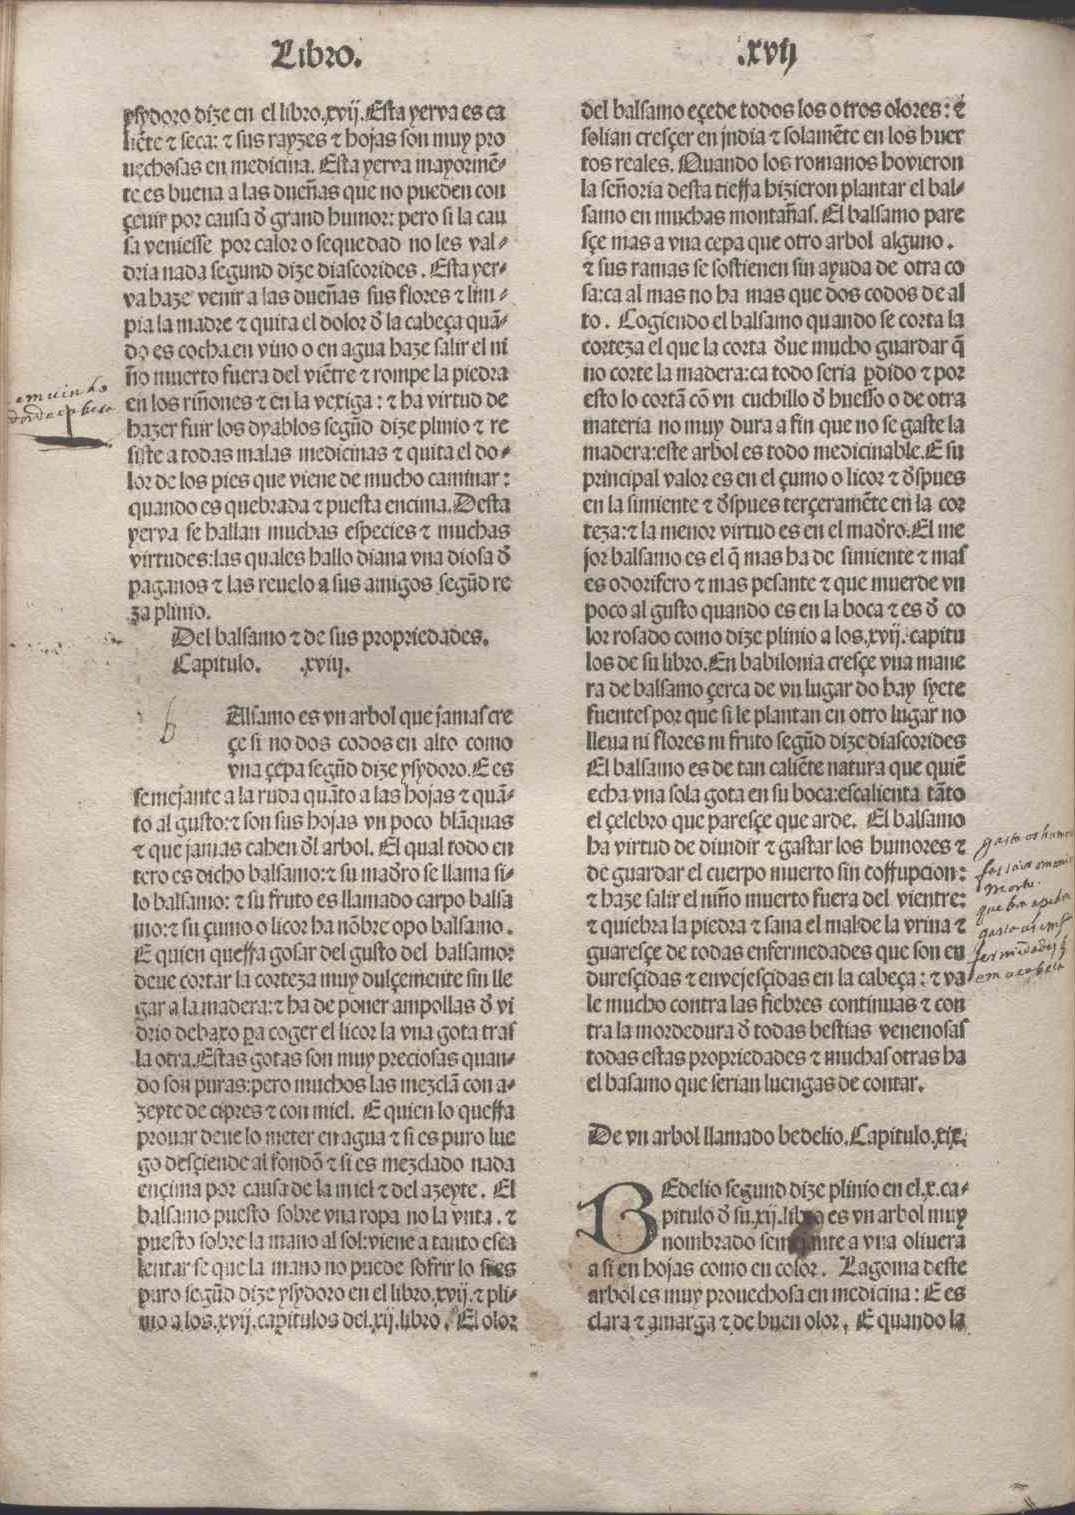 Libro. .xvij
ysydoro dize en el libro.xvij.Esta yerva es ca
liẽte ⁊ seca: ⁊ sus rayzes ⁊ hojas son muy pro
uechosas en medicina. Esta yerva mayormẽ-
te es buena a las dueñas que no pueden con
çeuir por causa ð grand humor: pero si la cau
sa veniesse por calor o sequedad no les val-
dria nada segund dize diascorides. Esta yer-
va haze venir a las dueñas sus flores ⁊ lim-
pia la madre ⁊ quita el dolor ð la cabeça quã-
do es cocha.en vino o en agua haze salir el ni
ño muerto fuera del viẽtre ⁊ rompe la piedra
en los riñones ⁊ en la vexiga: ⁊ ha virtud de
hazer fuir los dyablos segũd dize plinio ⁊ re
siste a todas malas medicinas ⁊ quita el do-
lor de los pies que viene de mucho caminar:
quando es quebrada ⁊ puesta encima.Desta
yerva se hallan muchas especies ⁊ muchas
virtudes:las quales hallo diana vna diosa ð
paganos ⁊ las reuelo a sus amigos segũd re
za plinio.
Del balsamo ⁊ de sus propriedades.
Capitulo. .xviij.
b
Alsamo es vn arbol que jamas cre
çe si no dos codos en alto como
vna çepa segũd dize ysydoro.E es
semejante a la ruda quãto a las hojas ⁊ quã-
to al gusto:⁊ son sus hojas vn poco blãquas
⁊ que jamas cahen ðl arbol. El qual todo en
tero es dicho balsamo:⁊ su maðro se llama si-
lo balsamo: ⁊ su fruto es llamado carpo balsa
mo:⁊ su çumo o licor ha nõbre opo balsamo.
E quien queſſa gosar del gusto del balsamo:
deue cortar la corteza muy dulçemente sin lle
gar a la madera:⁊ ha de poner ampollas ð vi
drio debaxo pa coger el licor la vna gota tras
la otra.Estas gotas son muy preciosas quan-
do son puras:pero muchos las mezclã con a-
zeyte de cipres ⁊ con miel. E quien lo queſſa
prouar deue lo meter en agua ⁊ si es puro lue
go desçiende al fondõ ⁊ si es mezclado nada
ençima por causa de la miel ⁊ del azeyte. El
balsamo puesto sobre vna ropa no la vnta. ⁊
puesto sobre la mano al sol:viene a tanto esca
lentar se que la mano no puede sofrir lo si es
puro segũd dize ysydoro en el libro.xvij.⁊ pli-
nio a los.xvij.capitulos del.xij.libro. El olor
del balsamo eçede todos los otros olores: ⁊
solian cresçer en jndia ⁊ solamẽte en los huer
tos reales. Quando los romanos hovieron
la señoria desta tieſſa hizieron plantar el bal-
samo en muchas montañas. El balsamo pare
sçe mas a vna cepa que otro arbol alguno.
⁊ sus ramas se sostienen sin ayuda de otra co
sa:ca al mas no ha mas que dos codos de al
to. Cogiendo el balsamo quando se corta la
corteza el que la corta ðue mucho guardar q̃
no corte la madera:ca todo seria pdido ⁊ por
esto lo cortã cõ vn cuchillo ð huesso o de otra
materia no muy dura a fin que no se gaste la
madera:este arbol es todo medicinable.E su
principal valor es en el çumo o licor ⁊ ðspues
en la simiente ⁊ ðspues terçeramẽte en la cor
teza:⁊ la menor virtud es en el maðro.El me
jor balsamo es el q̃ mas ha de simiente ⁊ mas
es odorifero ⁊ mas pesante ⁊ que muerde vn
poco al gusto quando es en la boca ⁊ es ð co
lor rosado como dize plinio a los.xvij.capitu
los de su libro.En babilonia cresçe vna mane
ra de balsamo çerca de vn lugar do hay syete
fuentes por que si le plantan en otro lugar no
lleua ni flores ni fruto segũd dize diascorides
El balsamo es de tan caliẽte natura que quiẽ
echa vna sola gota en su boca:escalienta tãto
el çelebro que paresçe que arde. El balsamo
ha virtud de diuidir ⁊ gastar los humores ⁊
de guardar el cuerpo muerto sin coſſupcion:
⁊ haze salir el niño muerto fuera del vientre:
⁊ quiebra la piedra ⁊ sana el mal de la vrina ⁊
guaresçe de todas enfermedades que son en
duresçidas ⁊ envejesçidas en la cabeça: ⁊ va
le mucho contra las fiebres continuas ⁊ con
tra la mordedura ð todas bestias venenosas
todas estas propriedades ⁊ muchas otras ha
el basamo que serian luengas de contar.
De vn arbol llamado bedelio.Capitulo.xix.
BEdelio segund dize plinio en el.x.ca-
pitulo ð su.xij.libro es vn arbol muy
nombrado semejante a vna oliuera
a si en hojas como en color. La goma deste
arbol es muy prouechosa en medicina: E es
clara ⁊ amarga ⁊ de buen olor. E quando la